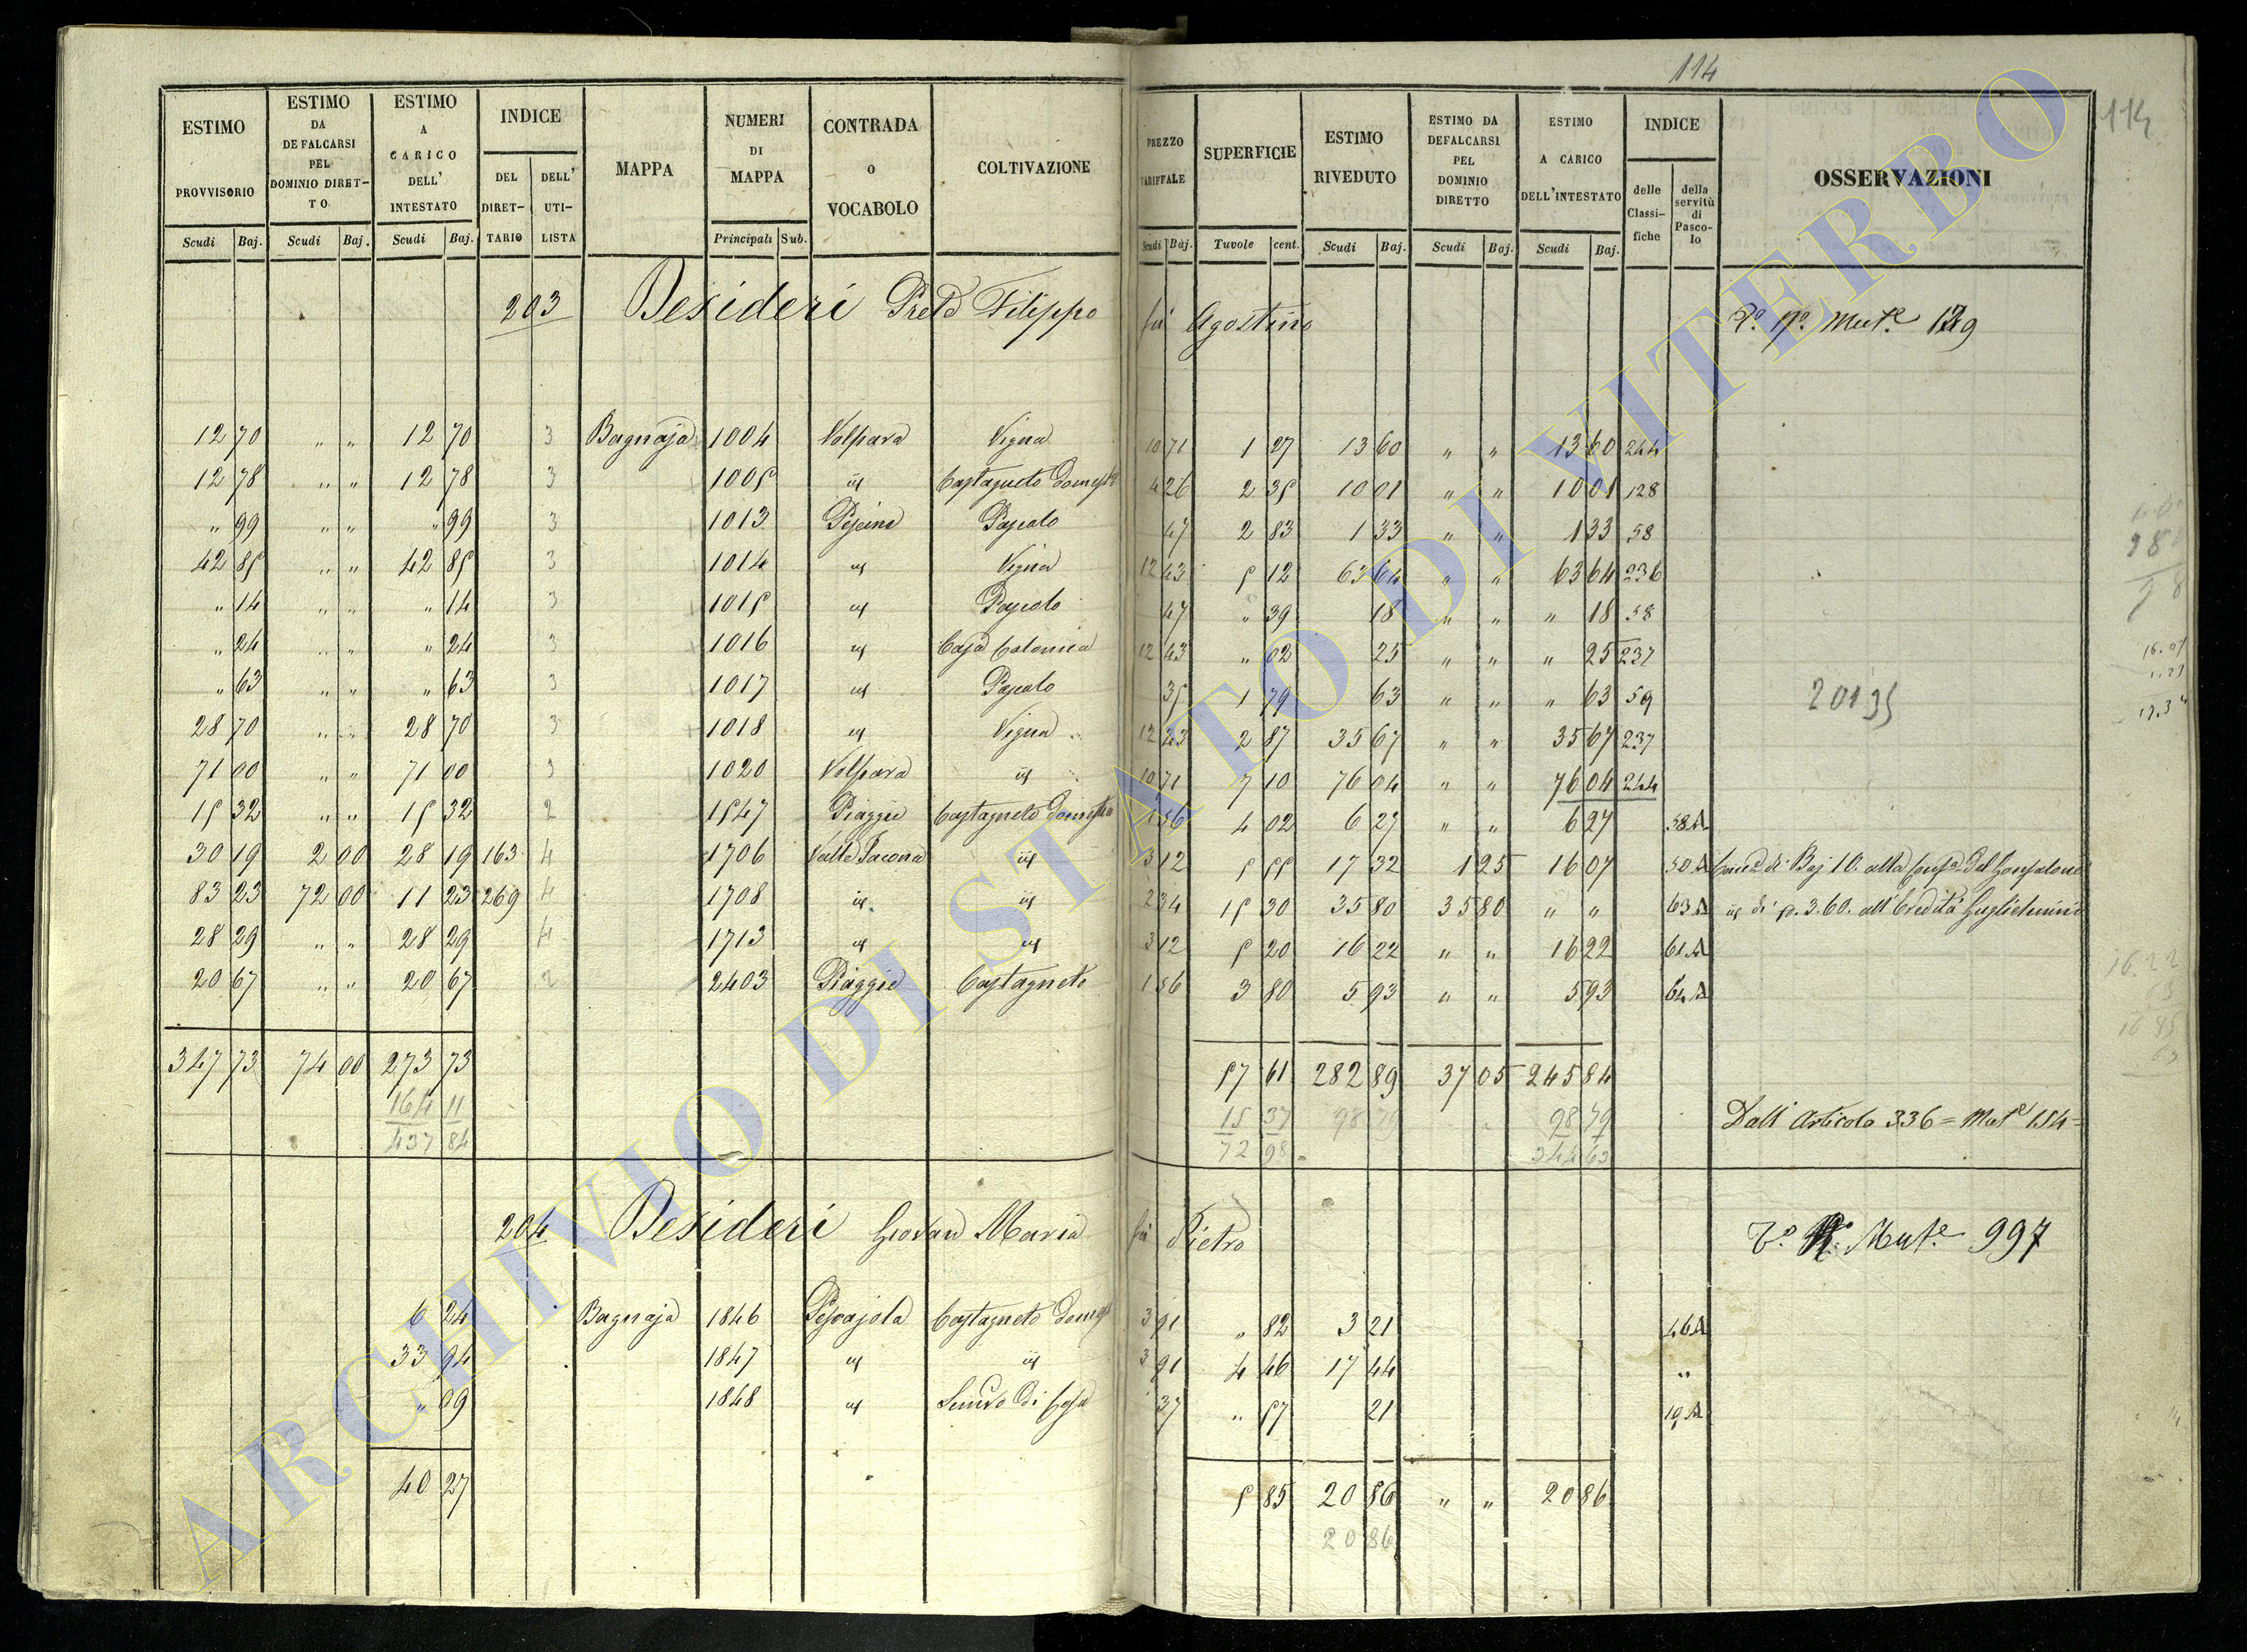 114
114
ESTIMO PROVVISORIO Scudi Baj.
ESTIMO DA DEFALCARSI PEL DOMINIO DIRET-TO Scudi Baj.
ESTIMO A CARICO DELL' INTESTATO Scudi Baj.
INDICE DEL DIRET-TARIO DELL' UTI-LISTA
MAPPA
NUMERI DI MAPPA Principali Sub.
CONTRADA O VOCABOLO
COLTIVAZIONE
PREZZO TARIFFALE Scudi Baj.
SUPERFICIE Tavole cent.
ESTIMO RIVEDUTO Scudi Baj.
ESTIMO DA DEFALCARSI PEL DOMINIO DIRETTO Scudi Baj.
ESTIMO A CARICO DELL'INTESTATO Scudi Baj.
INDICE delle Classi-fiche della servitù di Pasco-lo
OSSERVAZIONI
203 Desideri Filippo fu Agostino
12 70 " " 12 70 3 Bagnaja 1004 Volpara Vigna 10 71 1 27 13 60 " " 13 60 244
12 78 " " 12 78 3 1005 id Castagneto domest 4 26 2 35 10 01 " " 10 01 128
" 99 " " " 99 3 1013 Pascolo 47 2 83 1 33 " " 1 33 58
42 85 " " 42 85 3 1014 id Vigna 12 43 5 12 63 64 " " 63 64 236
" 14 " " " 14 3 1015 id Pascolo 47 " 39 18 " " " 18 58
" 24 " " " 24 3 1016 id Casa Colonica 12 43 " 02 25 " " " 25 237
" 63 " " " 63 3 1017 id Pascolo 35 1 79 63 " " " 63 59
28 70 " " 28 70 3 1018 id Vigna 12 43 2 87 35 67 " " 35 67 237
71 00 " " 71 00 3 1020 Volpara id 10 71 7 10 76 04 " " 76 04 244
15 32 " " 15 32 2 1547 Piaggie Castagneto domest 1 56 4 02 6 27 " " 6 27 58.A
30 19 2 00 28 19 163 4 1706 Valle id 3 12 5 55 17 32 1 25 16 07 50 A di Baj 10. alla del Gonfalone
83 23 72 00 11 23 269 4 1708 id id 2 34 15 30 35 80 35 80 " " 63 A id di 3.60. all' Eredità Guglielmini
28 29 " " 28 29 4 1713 id id 3 12 5 20 16 22 " " 16 22 61.A
20 67 " " 20 67 2 2403 Piaggie Castagneto 1 56 3 80 5 93 " " 5 93 64 A
347 73 74 00 273 73 57 61 282 89 37 05 245 84
164 11 15 37 98 79 98 79 Dall' Articolo 336 = Mut 154 =
437 84 72 98 344 63
20135
204 Desideri Giovan Maria fu Pietro Mut. 997
6 24 Bagnaja 1846 Pescajola Castagneto domest 3 91 " 82 3 21 46A
33 94 1847 id id 3 91 4 46 17 44 "
" 09 1848 id 37 " 57 21 19 A
40 27 5 85 20 86 " " 20 86
20 86
ARCHIVIO DI STATO DI VITERBO